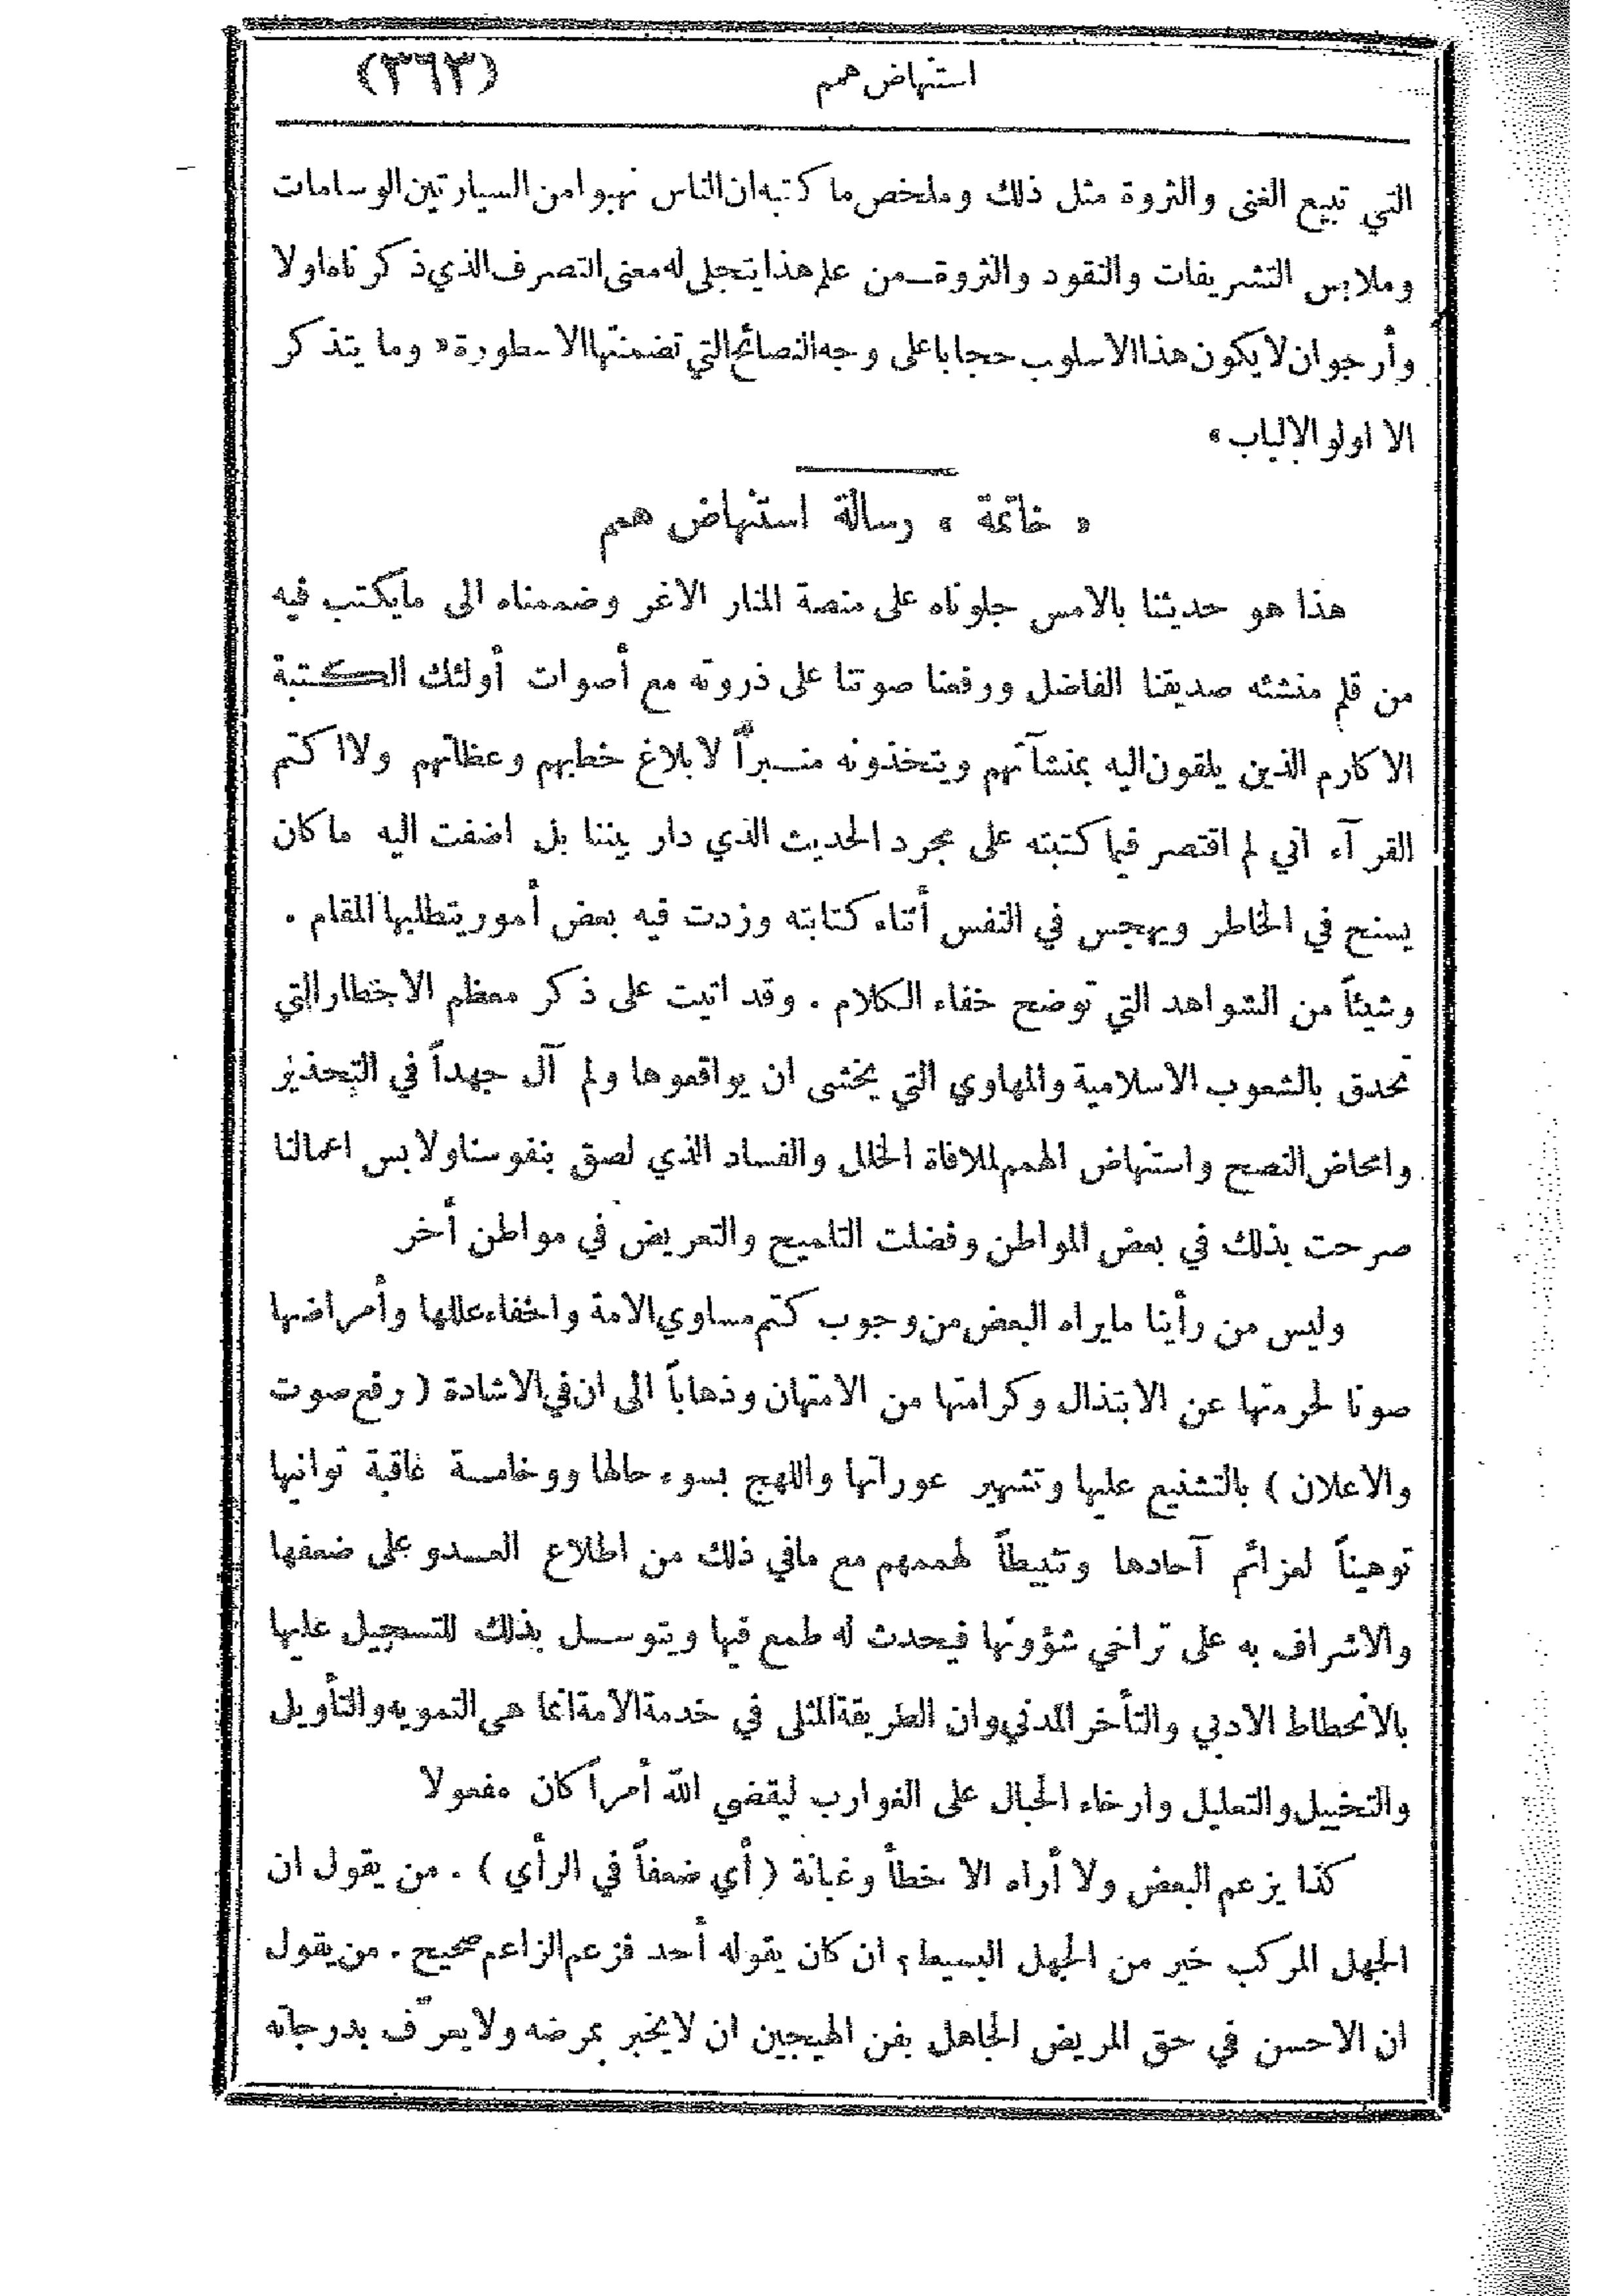 استنهاض همم (٣٦٣)
التي تبيع الغنى والثروة مثل ذلك وملخص ما كتبه ان الناس نهبوا من السيارتين الوسامات
وملابس التشريفات والنقود والثروة ــ من علم هذا يتجلى له معنى التصرف الذي ذكرناه اولا
وأرجو ان لا يكون هذا الاسلوب حجابا على وجه النصائح التي تضمنتها الاسطورة « وما يتذكر
الا اولو الالباب »
« خاتمة » رسالة استنهاض همم
هذا هو حديثنا بالامس جلوناه على منصة المنار الاغر وضممناه الى مايكتب فيه
من قلم منشئه صديقنا الفاضل ورفعنا صوتنا على ذروته مع أصوات أولئك الكتبة
الاكارم الذين يلقون اليه بمنشآتهم ويتخذونه منــبراً لابلاغ خطبهم وعظاتهم ولا اكتم
القرآء اني لم اقتصر فيما كتبته على مجرد الحديث الذي دار بيننا بل اضفت اليه ماكان
يسنح في الخاطر ويهجس في النفس أثناء كتابته وزدت فيه بعض أمور يتطلبها المقام .
وشيئاً من الشواهد التي توضح خفاء الكلام . وقد اتيت على ذكر معظم الاخطار التي
تحدق بالشعوب الاسلامية والمهاوي التي يخشى ان يواقعوها ولم آل جهداً في التحذير
وامحاض النصح واستنهاض الهمم لملافاة الخلل والفساد الذي لصق بنفوسنا ولابس اعمالنا
صرحت بذلك في بعض المواطن وفضلت التلميح والتعريض في مواطن أخر
وليس من رأينا مايراه البعض من وجوب كتم مساوي الامة واخفاء عللها وأمراضها
صونا لحرمتها عن الابتذال وكرامتها من الامتهان وذهاباً الى ان في الاشادة ( رفع صوت
والاعلان ) بالتشنيع عليها وتشهير عوراتها واللهج بسوء حالها ووخامــة عاقبة توانيها
توهيناً لعزائم آحادها وتثبيطاً لهممهم مع مافي ذلك من اطلاع العــدو على ضعفها
والاشراف به على تراخي شؤونها فيحدث له طمع فيها ويتوســل بذلك للتسجيل عليها
بالانحطاط الادبي والتأخر المدني وان الطريقة المثلى في خدمة الامة انما هي التمويه والتأويل
والتخييل والتعليل وارخاء الحبال على الغوارب ليقضي الله أمراً كان مفعولا
كذا يزعم البعض ولا أراه الا خطأ وغبانة ( أي ضعفاً في الرأي ) . من يقول ان
الجهل المركب خير من الجهل البسيط ؟ ان كان يقوله أحد فزعم الزاعم صحيح . من يقول
ان الاحسن في حق المريض الجاهل بفن الهيجين ان لايخبر بمرضه ولايعرّف بدرجاته